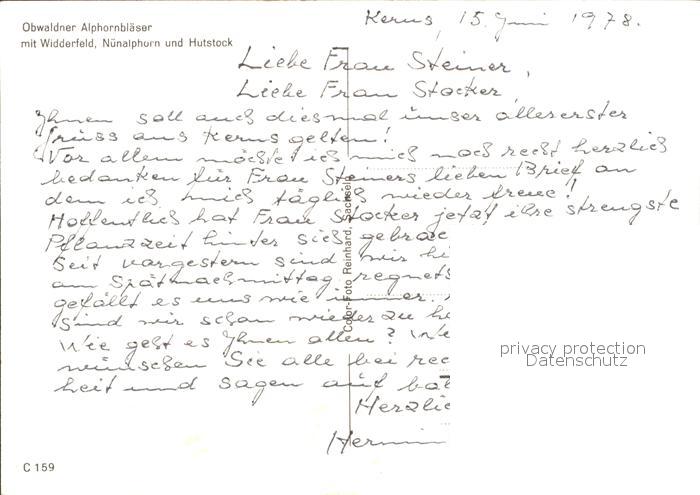 Obwaldner Alphornbläser
mit Widderfeld, Nünalphorn und Hutstock
Kerns, 15. Juni 1978.
Liebe Frau Steiner,
Liebe Frau Stocker,
Ihnen soll auch diesmal unser allererster
Gruss aus Kerns gelten!
Vor allem möchte ich mich noch recht herzlich
bedanken für Frau Steiners lieben Brief an
dem ich mich täglich wieder freue!
Hoffentlich hat Frau Stocker jetzt ihre strengste
Pflanzzeit hinter sich gebrac
Seit vorgestern sind wir hi
am Spätnachmittag regnets
gefällt es uns wie immer.
sind wir schon wieder zu h
Wie geht es Ihnen allen? We
wünschen Sie alle bei rec
heit und sagen auf bal
Herzlic
Hermin
Color-Foto Reinhard, Sachseln
privacy protection
Datenschutz
C 159